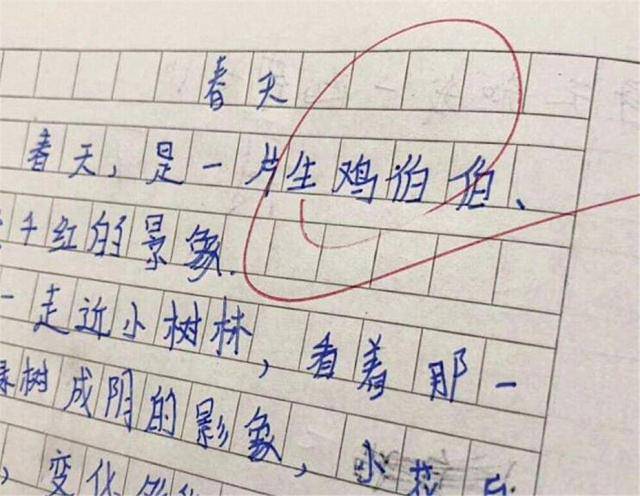 春天
春天，是一片生鸡伯伯、
千红的景象.
一走近小树林，看着那一
树成阴的影象，小花
，变化